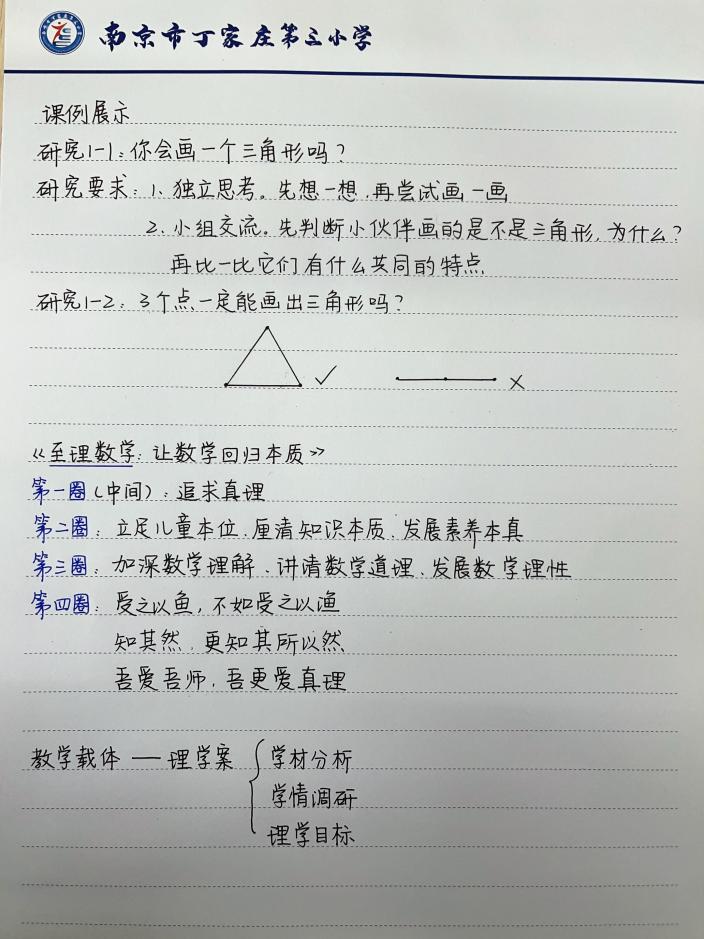 南京市丁家庄第三小学
课例展示
研究1-1：你会画一个三角形吗？
研究要求：1、独立思考。先想一想，再尝试画一画
2、小组交流。先判断小伙伴画的是不是三角形，为什么？
再比一比它们有什么共同的特点
研究1-2：3个点一定能画出三角形吗？
《至理数学：让数学回归本质》
第一圈（中间）：追求真理
第二圈：立足儿童本位、厘清知识本质、发展素养本真
第三圈：加深数学理解、讲清数学道理、发展数学理性
第四圈：受之以鱼，不如受之以渔
知其然，更知其所以然
吾爱吾师，吾更爱真理
教学载体——理学案
学材分析
学情调研
理学目标